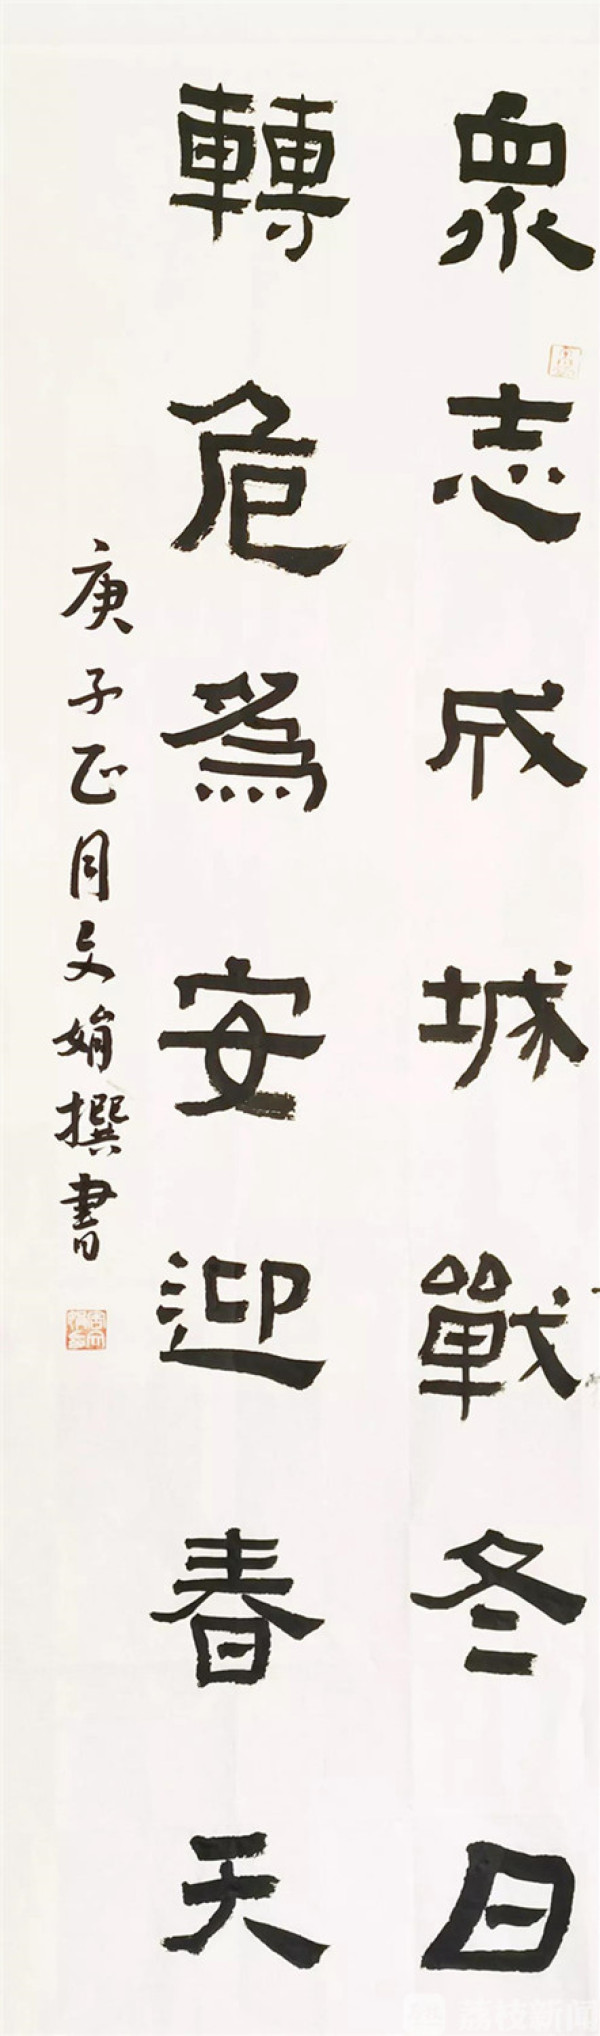 眾志成城戰冬日
轉危為安迎春天
庚子正月文娟撰書
荔枝新闻